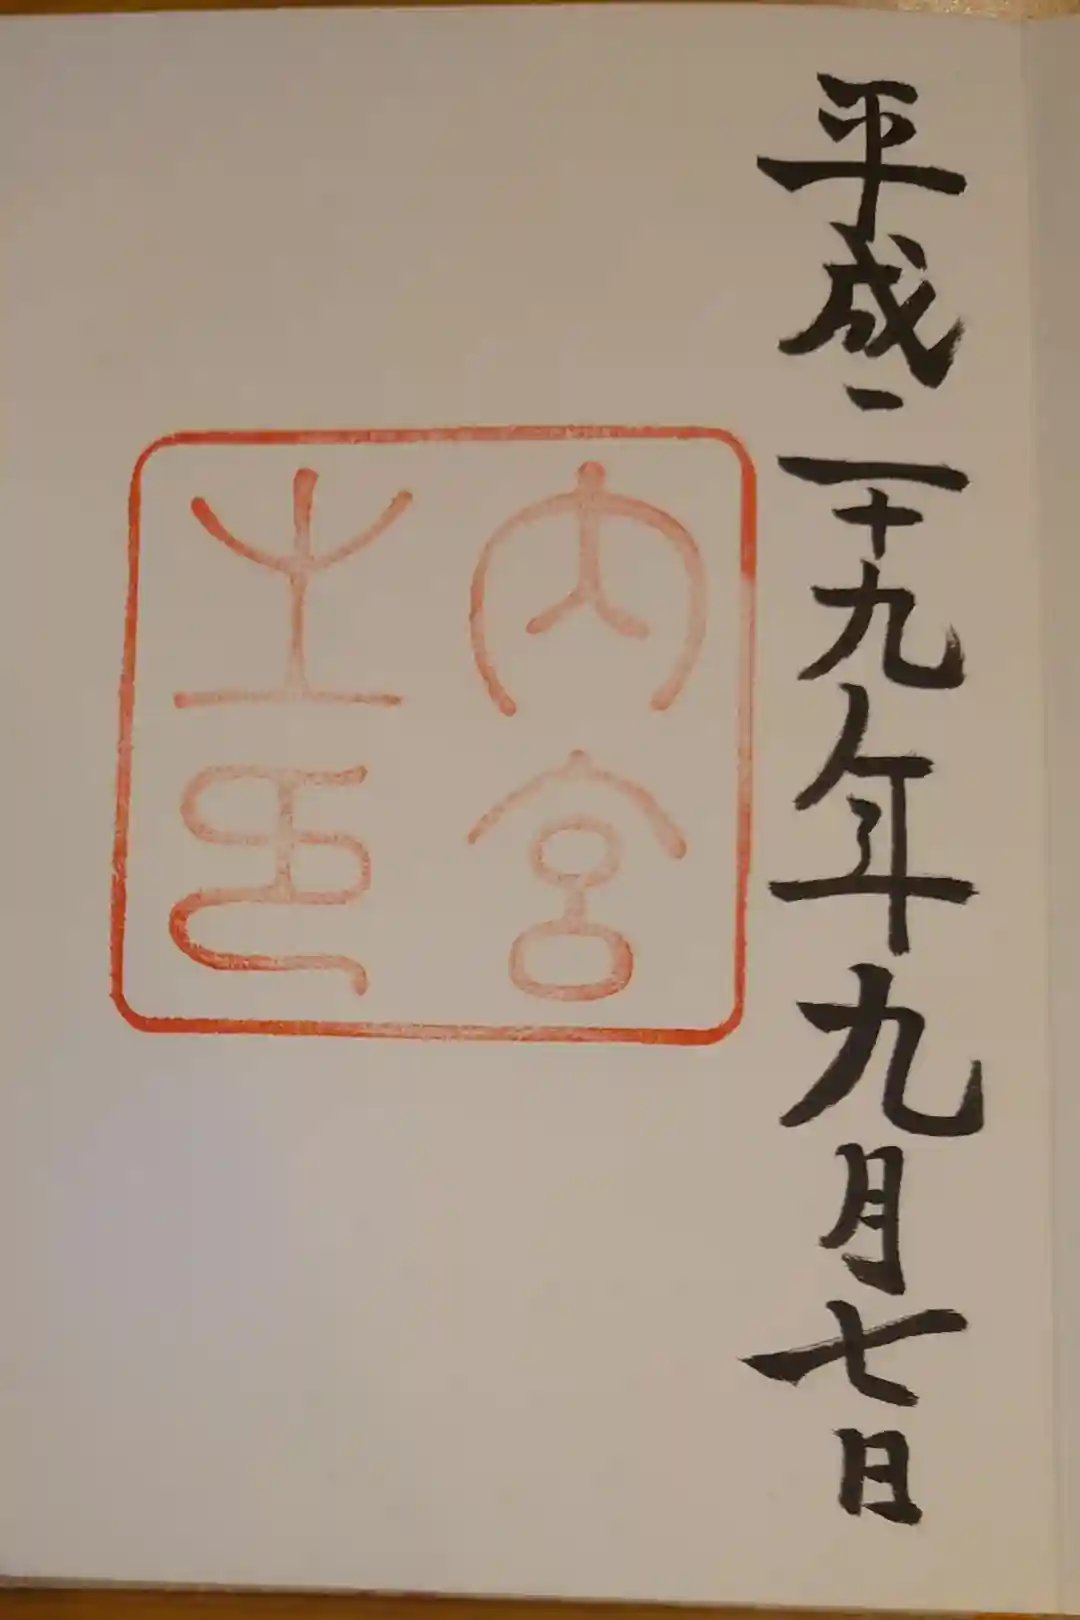 平成二十九年九月七日
内宮
之印